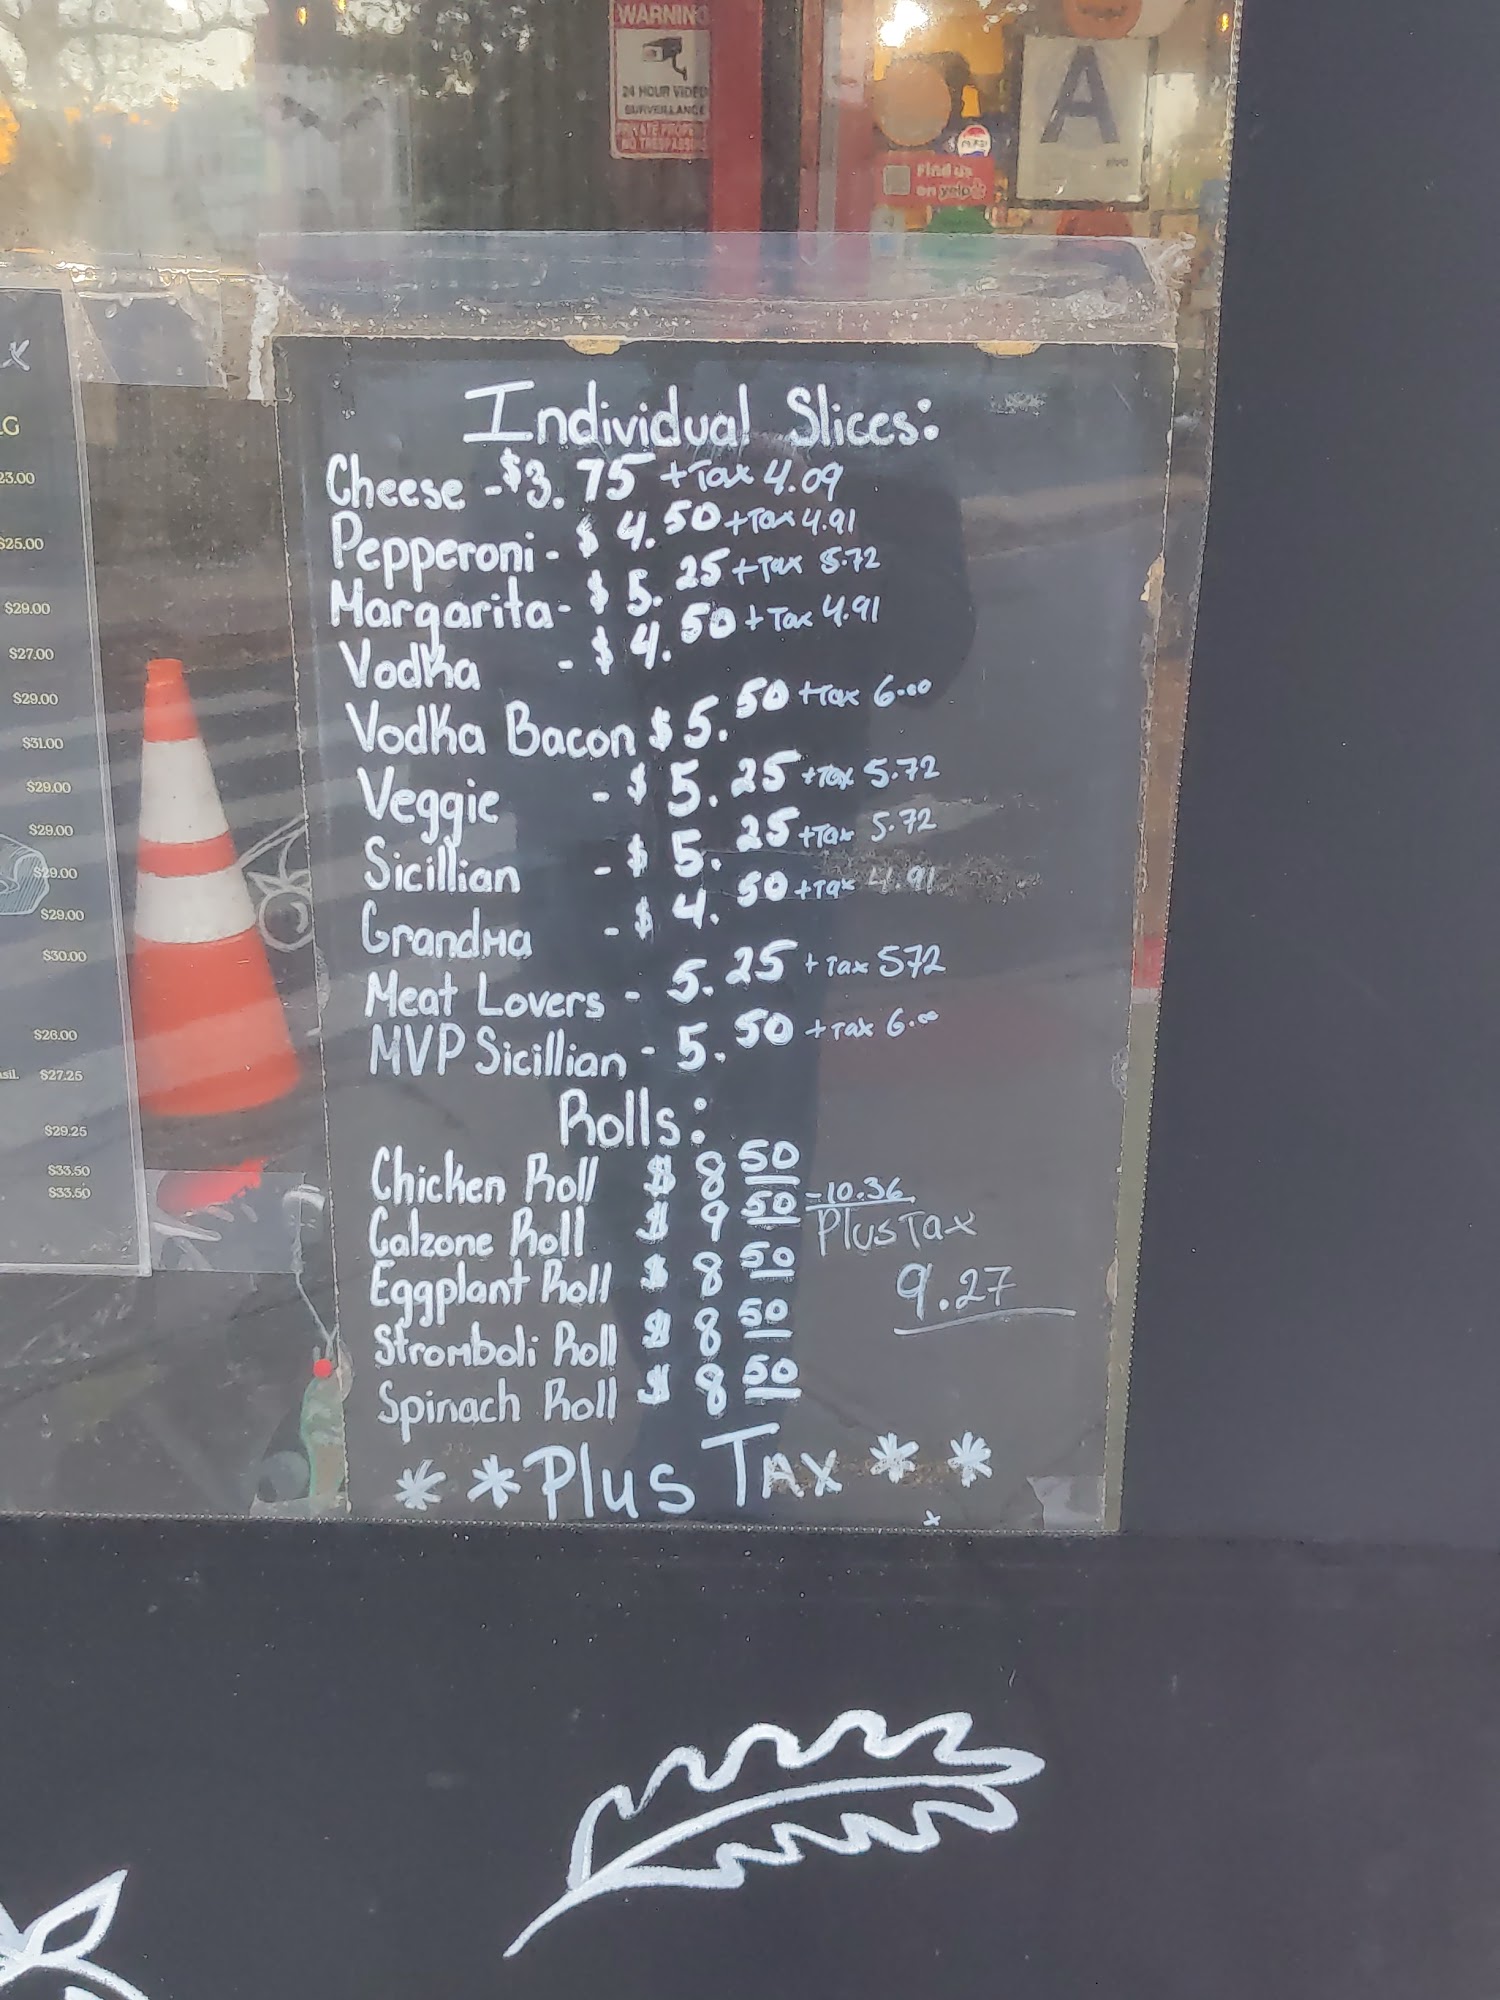 WARNING
24 HOUR VIDEO
SURVEILLANCE
PRIVATE PROPERTY
NO TRESPASSING
A
PEPSI
Find us
on yelp
LG
23.00
$25.00
$29.00
$27.00
$29.00
$31.00
$29.00
$29.00
$29.00
$29.00
$30.00
$26.00
sil. $27.25
$29.25
$33.50
$33.50
Individual Slices:
Cheese - $3.75 + Tax 4.09
Pepperoni - $4.50 + Tax 4.91
Margarita - $5.25 + Tax 5.72
Vodka - $4.50 + Tax 4.91
Vodka Bacon $5.50 + Tax 6.00
Veggie - $5.25 + Tax 5.72
Sicillian - $5.25 + Tax 5.72
Grandma - $4.50 + Tax 4.91
Meat Lovers - 5.25 + Tax 572
MVP Sicillian - 5.50 + Tax 6.00
Rolls:
Chicken Roll $8 50
Calzone Roll $9 50 - 10.36
Eggplant Roll $8 50
Stromboli Roll $8 50
Spinach Roll $8 50
Plus Tax
9.27
* * Plus Tax * *